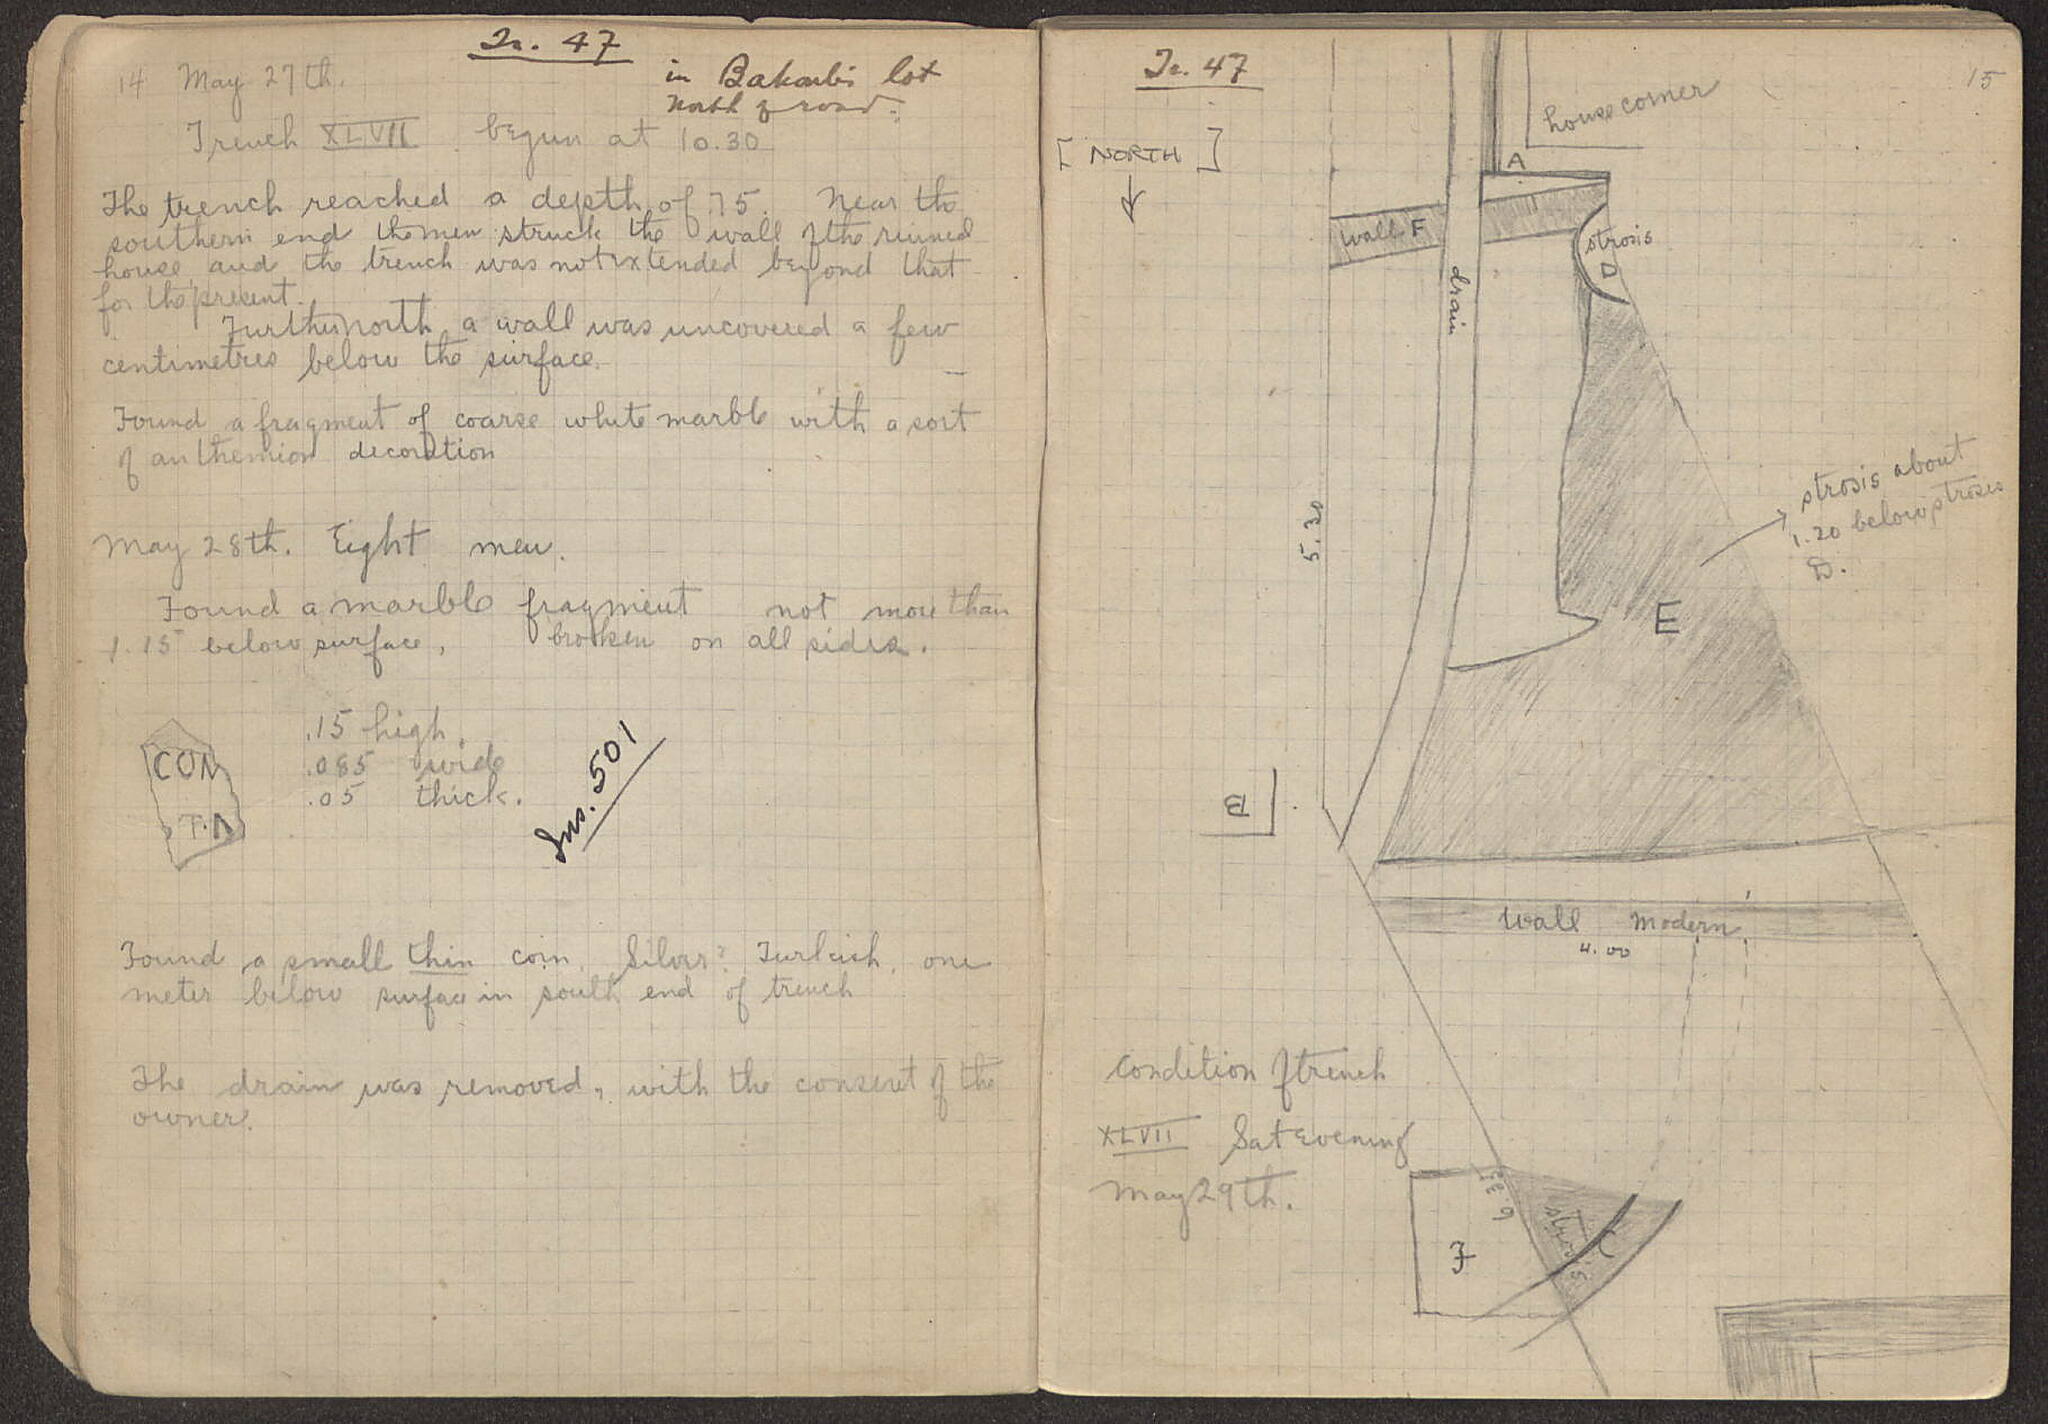 Tr. 47
in Bakoulis lot
North of road.
14 May 27th.
Trench XLVII begun at 10.30
The trench reached a depth of .75. Near the
southern end the men struck the wall of the ruined
house and the trench was not extended beyond that
for the present.
Further north a wall was uncovered a few
centimetres below the surface.
Found a fragment of coarse white marble with a sort
of anthemion decoration
May 28th. Eight men.
Found a marble fragment not more than
1.15 below surface, broken on all sides.
.15 high.
.085 wide
.05 thick.
CON
T.A
Ins. 501
Found a small thin coin. Silver? Turkish, one
meter below surface in south end of trench
The drain was removed, with the consent of the
owner.
Tr. 47
15
[NORTH]
house corner
A
wall F
strosis
D
drain
5.30
strosis about
1.20 below strosis
D.
E
B
wall modern
4.00
Condition of trench
XLVII Sat evening
May 29th.
F
strosis
C